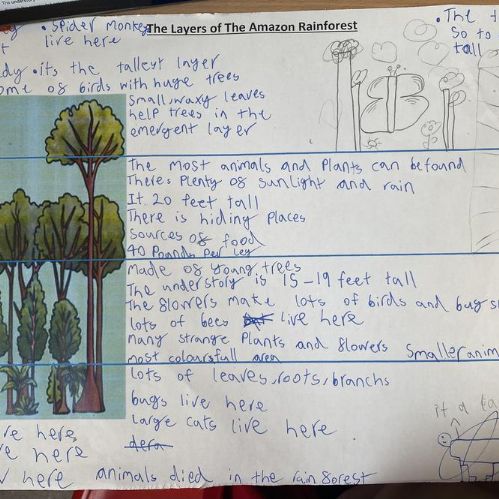 The Layers of The Amazon Rainforest
• Spider monkey
live here
• The t
So to
tall
dy • its the tallest layer
ome of birds with huge trees
Small, waxy leaves
help trees in the
emergent layer
The most animals and Plants can be found
There: Plenty of sunlight and rain
It 20 feet tall
There is hiding Places
Sources of food
40 Pounds Per leg
Made of young trees
The understory is 15-19 feet tall
The flowers make lots of birds and bugs
lots of bees live here
many strange Plants and flowers smaller anim
most coloursfull area
lots of leaves, roots, branchs
bugs live here
large cats live here
ve here,
ve here
here animals died in the rain forest
it a ta